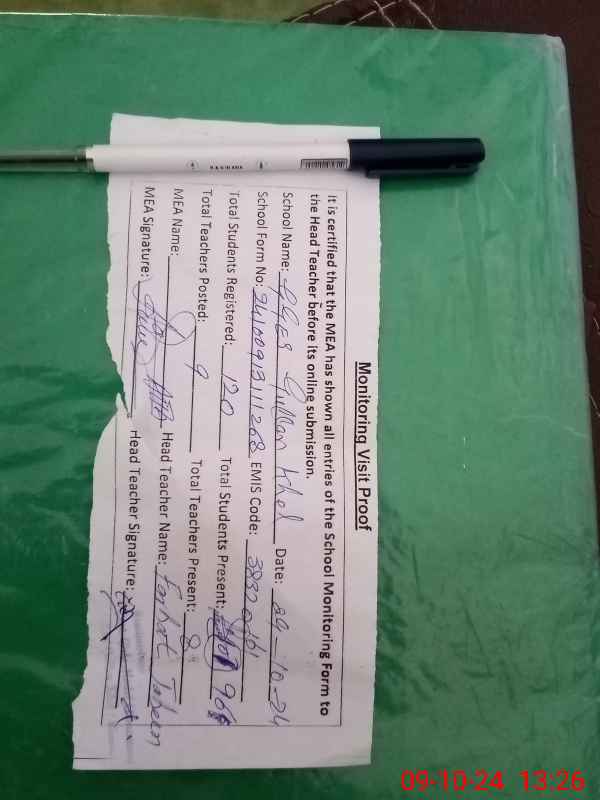 Monitoring Visit Proof
It is certified that the MEA has shown all entries of the School Monitoring Form to
the Head Teacher before its online submission.
School Name: GGPS Gullan khel Date: 09-10-24
School Form No: 2410091311268 EMIS Code:
Total Students Registered: 120 Total Students Present: 96
Total Teachers Posted: 9 Total Teachers Present: 8
MEA Name: Head Teacher Name: Farhat
MEA Signature: Head Teacher Signature:
09-10-24 13:26